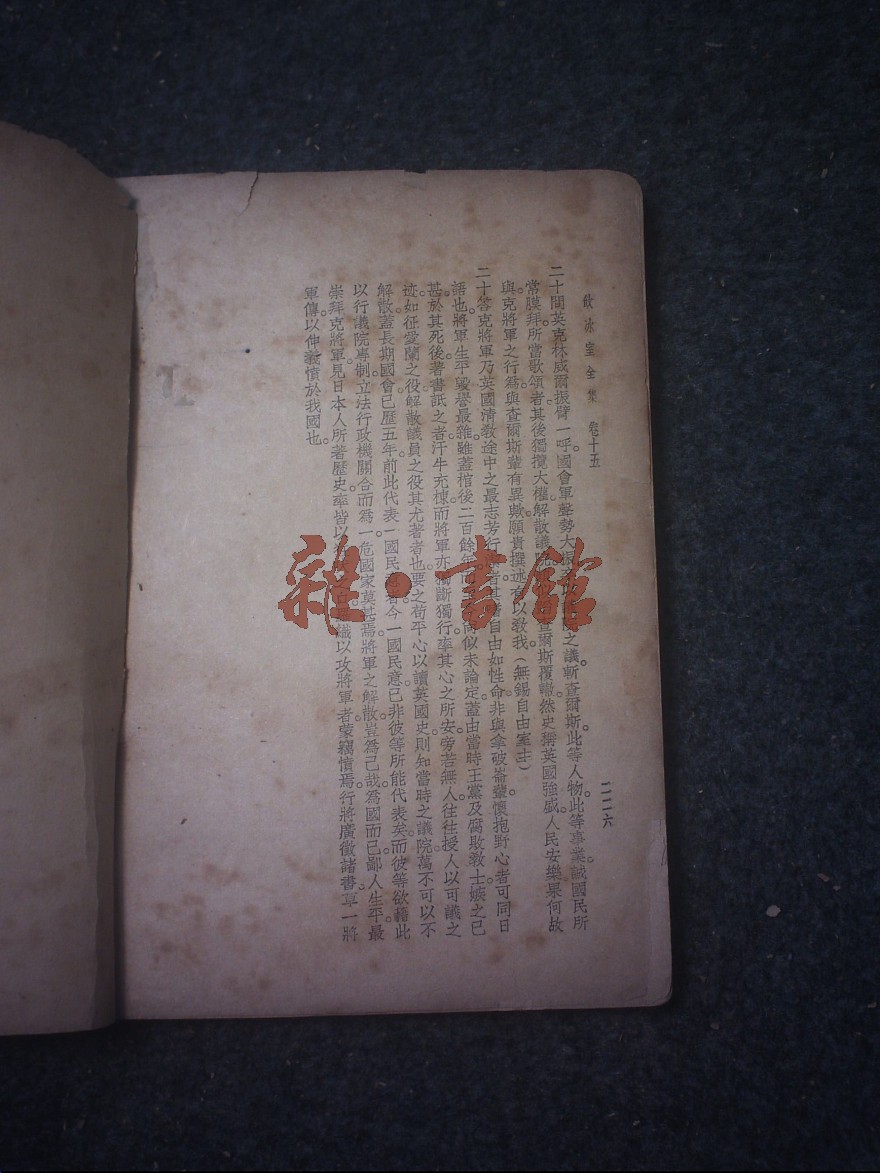 飲冰室全集 卷十五 二二六
二十問英克林威爾振臂一呼國會軍聲勢大振 之議斬查爾斯此等人物此等事業誠國民所
常膜拜所當歌頌者其後獨攬大權解散議院 查爾斯覆轍然史稱英國強盛人民安樂果何故
與克將軍之行爲與查爾斯輩有異歟願貴撰述有以敎我(無錫自由室主)
二十答克將軍乃英國淸敎途中之最志芳行 者其 自由如性命非與拿破崙輩懷抱野心者可同日
語也將軍生平望譽最雜雖蓋棺後二百餘年 尚似未論定蓋由當時王黨及腐敗敎士嫉之已
甚於其死後著書詆之者汗牛充棟而將軍亦獨斷獨行率其心之所安旁若無人往往授人以可議之
迹如征愛蘭之役解散議員之役其尤著者也要之苟平心以讀英國史則知當時之議院萬不可以不
解散蓋長期國會已歷五年前此代表一國民 者今一國民意已非彼等所能代表矣而彼等欲藉此
以行議院專制立法行政機關合而爲一危國家莫甚焉將軍之解散豈爲己哉爲國而已鄙人生平最
崇拜克將軍見日本人所著歷史率皆以 織以攻將軍者蒙竊憤焉行將廣徵諸書草一將
軍傳以伸義憤於我國也
雜·書館